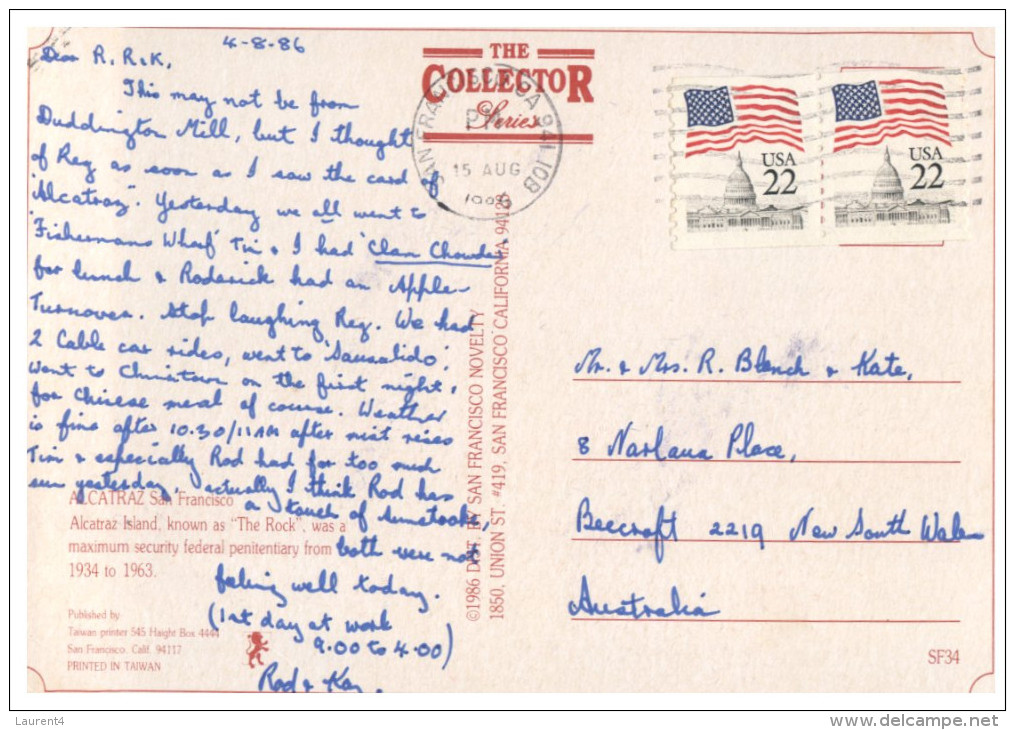 4-8-86
Dear R. R & K,
This may not be from
Duddington Mill, but I thought
of Reg as soon as I saw the card of
'Alcatraz'. Yesterday we all went to
'Fishermans Wharf' Tim & I had 'Clam Chowder'
for lunch & Roderick had an Apple
Turnover. Stop laughing Reg. We had
2 Cable car rides, went to 'Sausalido',
Went to Chinatown on the first night,
for Chinese meal of course. Weather
is fine after 10.30/11AM after mist rises
Tim & especially Rod had far too much
sun yesterday, actually I think Rod has
a touch of sunstroke,
both were not
feeling well today.
(1st day at work
9.00 to 4.00)
Rod & Kay.
ALCATRAZ San Francisco
Alcatraz Island, known as "The Rock", was a
maximum security federal penitentiary from
1934 to 1963.
Published by
Taiwan printer 545 Haight Box 4444
San Francisco, Calif. 94117
PRINTED IN TAIWAN
THE
COLLECTOR
Series
SAN FRANCISCO CA 941 10B
PM
15 AUG
1986
©1986 DIST. BY SAN FRANCISCO NOVELTY
1850, UNION ST. #419, SAN FRANCISCO CALIFORNIA 94123
USA
22
USA
22
Mr. & Mrs. R. Blench & Kate,
8 Place,
Beecroft 2219 New South Wales
Australia
SF34
Laurent4
delcampe.net